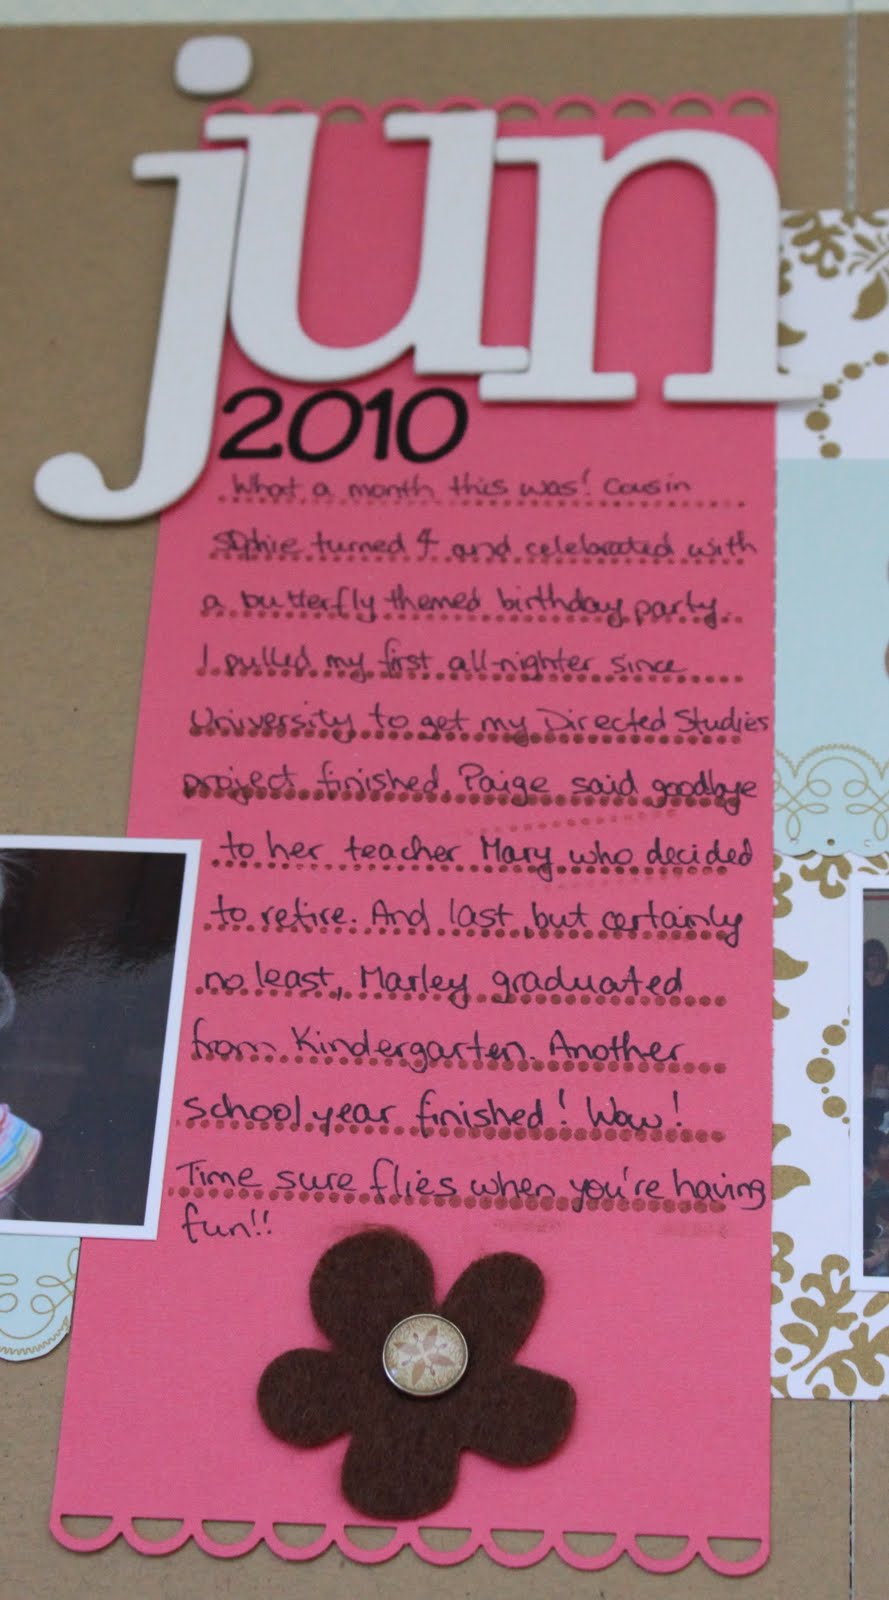 jun
2010
What a month this was! Cousin
Sophie turned 4 and celebrated with
a butterfly themed birthday party.
I pulled my first all-nighter since
University to get my Directed Studies
project finished. Paige said goodbye
to her teacher Mary who decided
to retire. And last, but certainly
no least, Marley graduated
from Kindergarten. Another
school year finished! Wow!
Time sure flies when you're having
fun!!